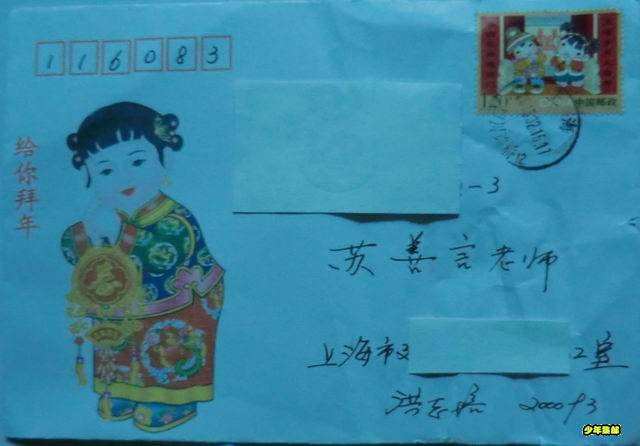 116083
1.20
中国邮政
给你拜年
-3
苏善言老师
上海市
室
洪志 200093
少年集邮